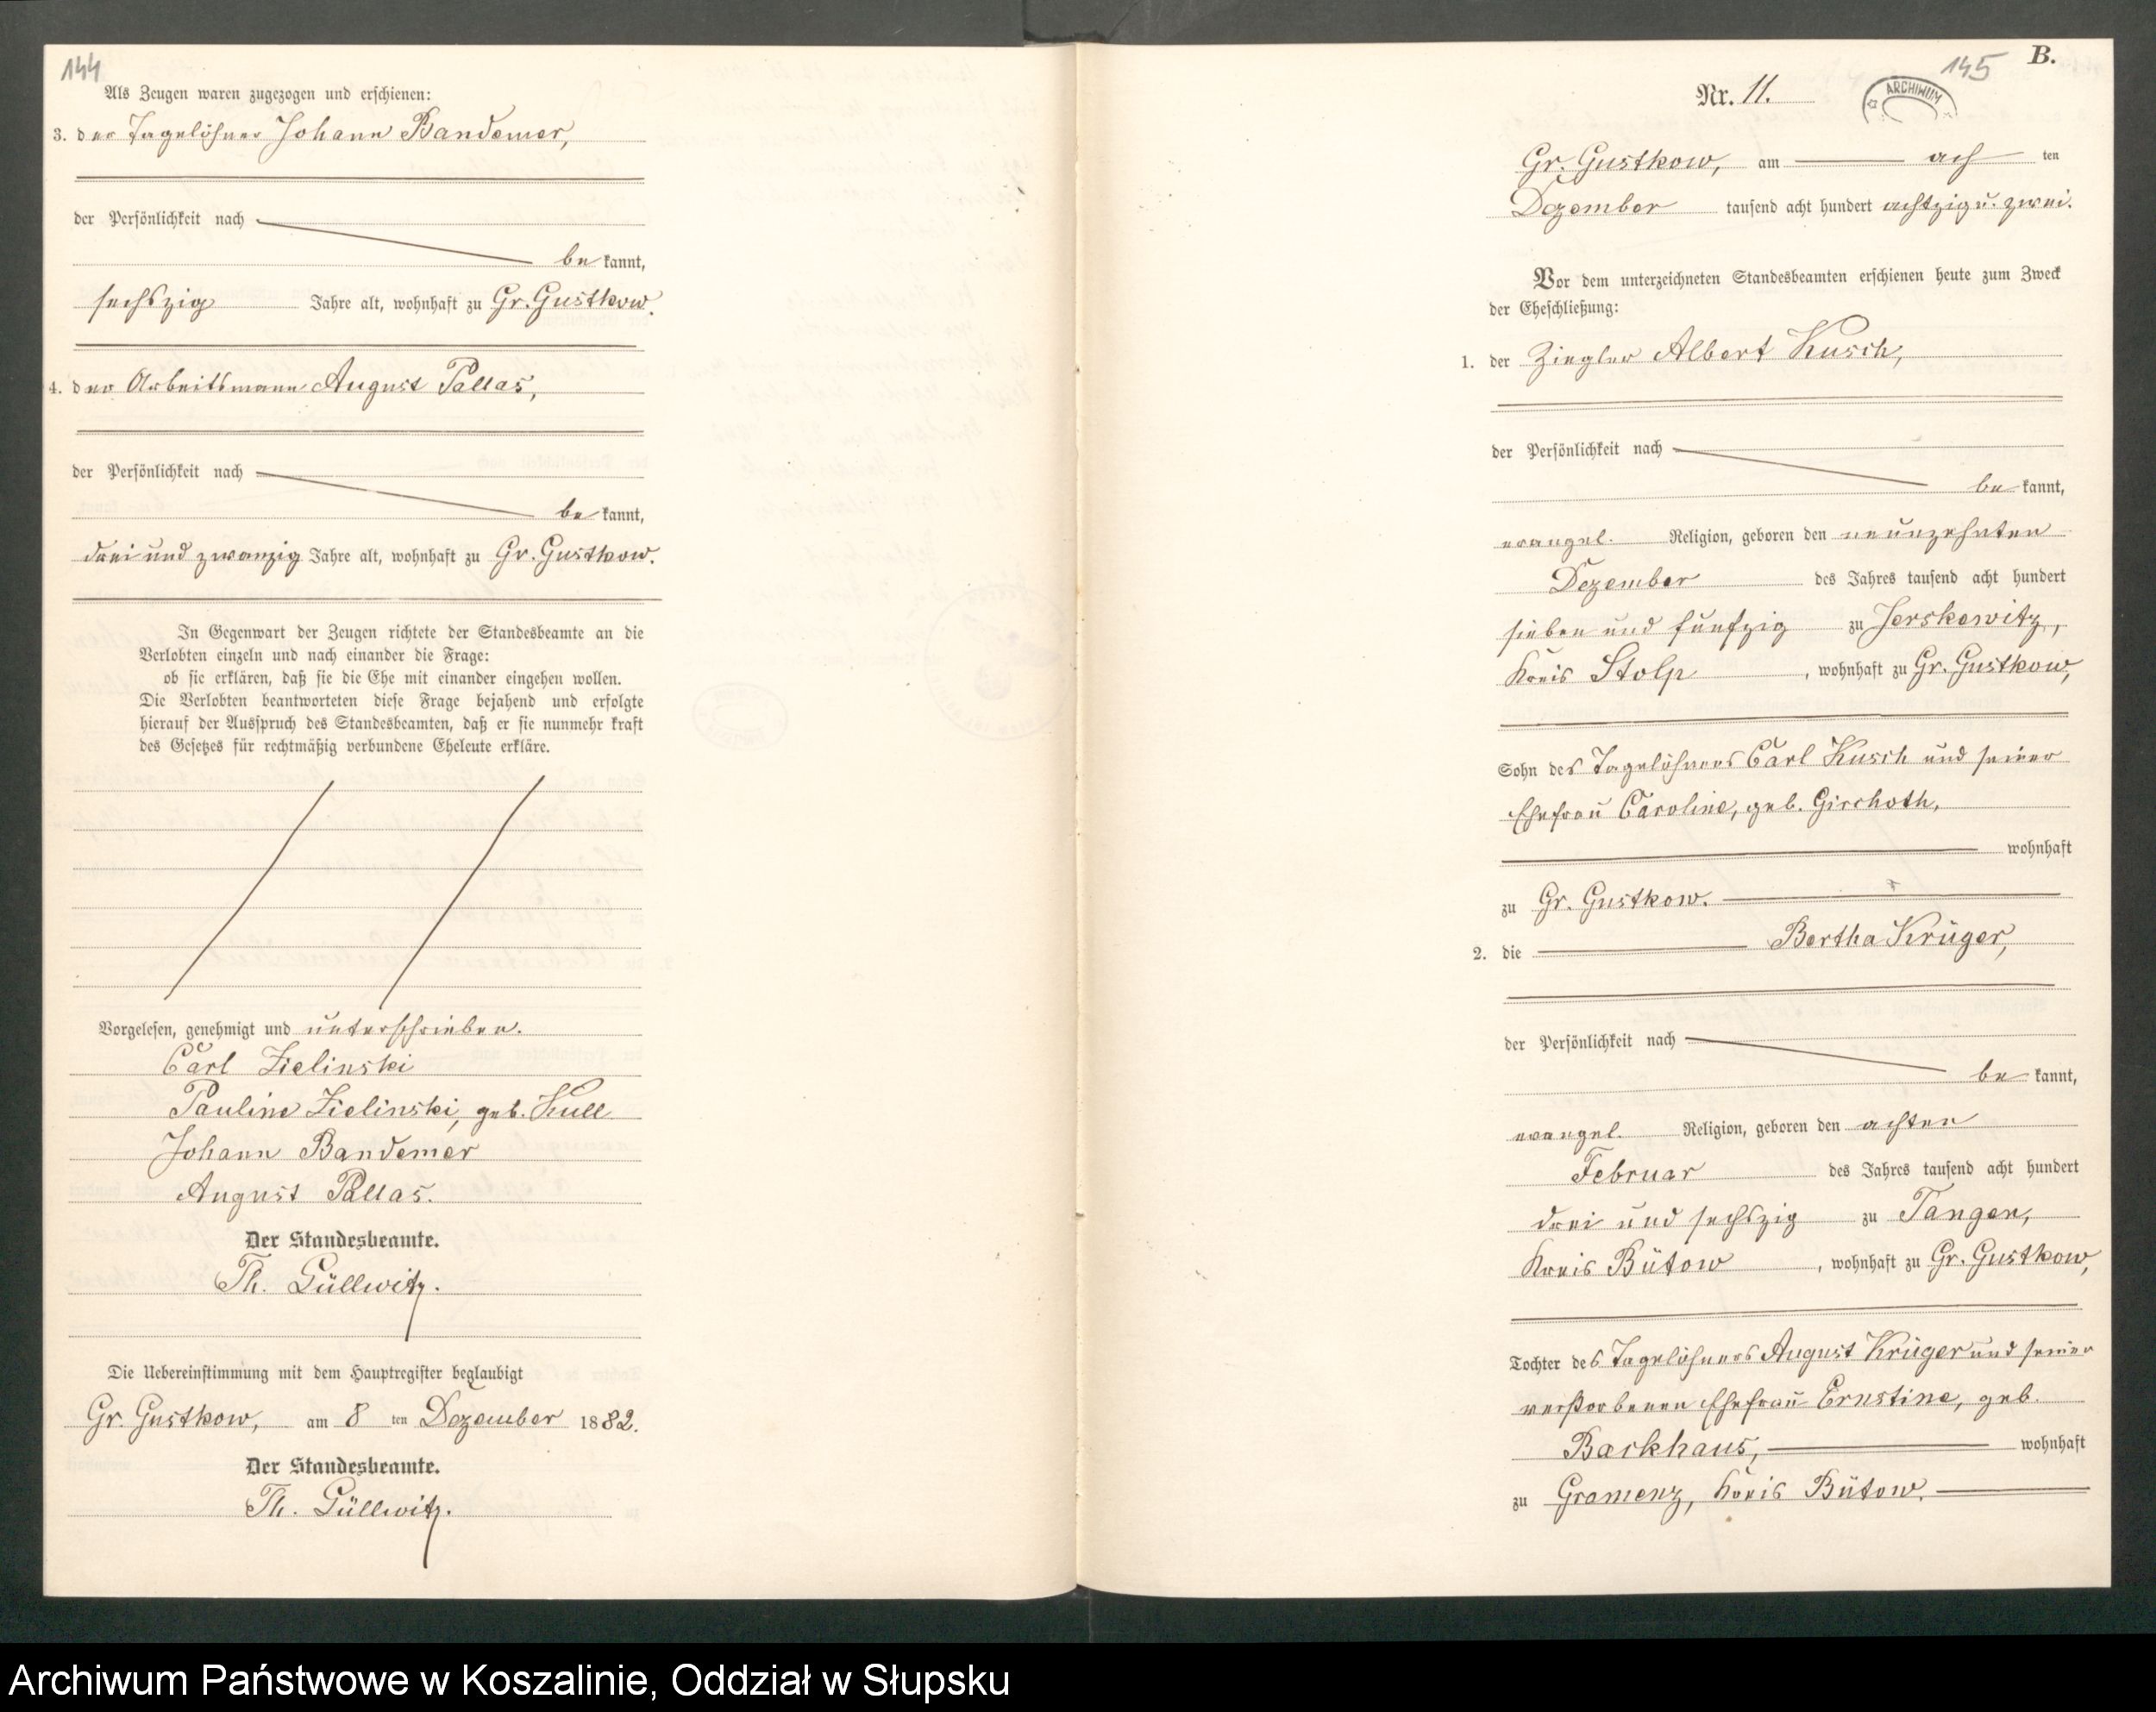 144
Als Zeugen waren zugezogen und erschienen:
3. der Tagelöhner Johann Bandemer,
der Persönlichkeit nach
be kannt,
sechszig Jahre alt, wohnhaft zu Gr. Gustkow.
4. der Arbeitsmann August Pallas,
der Persönlichkeit nach
be kannt,
drei und zwanzig Jahre alt, wohnhaft zu Gr. Gustkow.
In Gegenwart der Zeugen richtete der Standesbeamte an die
Verlobten einzeln und nach einander die Frage:
ob sie erklären, daß sie die Ehe mit einander eingehen wollen.
Die Verlobten beantworteten diese Frage bejahend und erfolgte
hierauf der Ausspruch des Standesbeamten, daß er sie nunmehr kraft
des Gesetzes für rechtmäßig verbundene Eheleute erkläre.
Vorgelesen, genehmigt und unterschrieben.
Carl Zielinski
Pauline Zielinski, geb. Kull
Johann Bandemer
August Pallas.
Der Standesbeamte.
Th. Güllwitz.
Die Uebereinstimmung mit dem Hauptregister beglaubigt
Gr. Gustkow, am 8 ten Dezember 1882.
Der Standesbeamte.
Th. Güllwitz.
145 B.
Nr. 11.
ARCHIWUM
Gr. Gustkow, am ach ten
Dezember tausend acht hundert achtzig u. zwei.
Vor dem unterzeichneten Standesbeamten erschienen heute zum Zweck
der Eheschließung:
1. der Ziegler Albert Kusch,
der Persönlichkeit nach
be kannt,
evangel. Religion, geboren den neunzehnten
Dezember des Jahres tausend acht hundert
sieben und fünfzig zu Jerskewitz,
Kreis Stolp, wohnhaft zu Gr. Gustkow,
Sohn des Tagelöhners Carl Kusch und seiner
Ehefrau Caroline, geb. Girchoth,
wohnhaft
zu Gr. Gustkow.
2. die Bertha Krüger,
der Persönlichkeit nach
be kannt,
evangel. Religion, geboren den achten
Februar des Jahres tausend acht hundert
drei und sechszig zu Tangen,
Kreis Bütow, wohnhaft zu Gr. Gustkow,
Tochter des Tagelöhners August Krüger und seiner
verstorbenen Ehefrau Ernstine, geb.
Backhaus, wohnhaft
zu Gramenz, Kreis Bütow.
Archiwum Państwowe w Koszalinie, Oddział w Słupsku